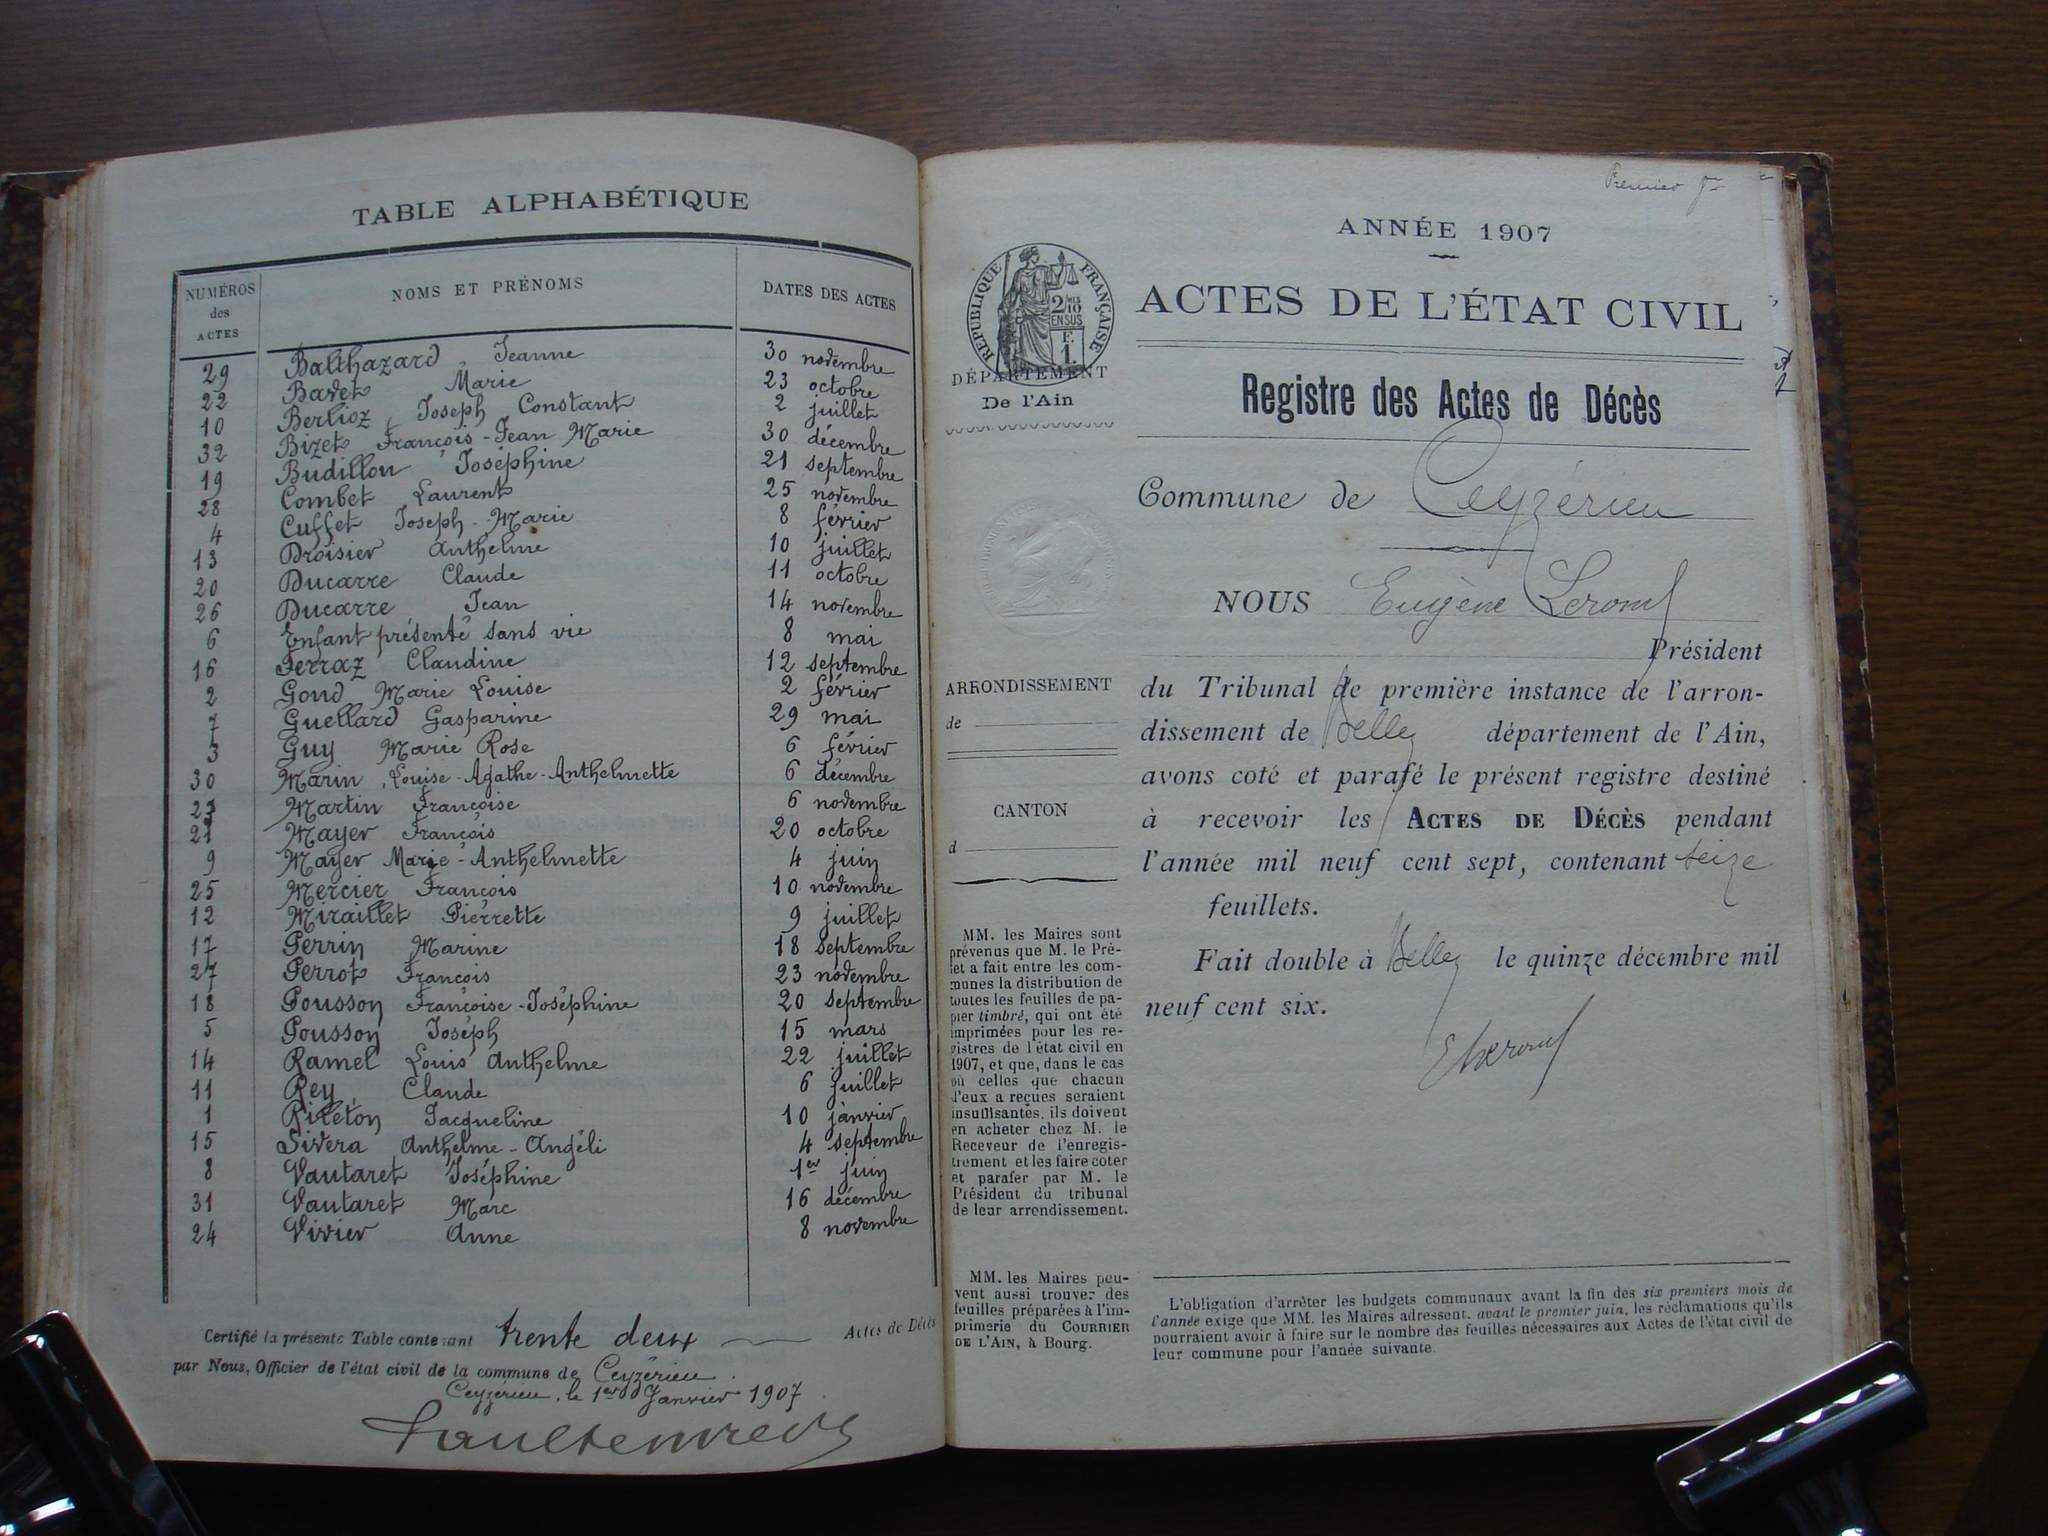 TABLE ALPHABÉTIQUE
NUMÉROS des ACTES NOMS ET PRÉNOMS DATES DES ACTES
29 Balthazard Jeanne 30 novembre
22 Bavet Marie 23 octobre
10 Berlioz Joseph Constant 2 juillet
32 Bizet François-Jean Marie 30 décembre
19 Budillon Joséphine 21 septembre
28 Combet Laurent 25 novembre
4 Cuffet Joseph-Marie 8 février
13 Droisier Anthelme 10 juillet
20 Ducarre Claude 11 octobre
26 Ducarre Jean 14 novembre
6 Enfant présenté sans vie 8 mai
16 Ferraz Claudine 12 septembre
2 Goud Marie Louise 2 février
7 Guellard Gasparine 29 mai
3 Guy Marie Rose 6 février
30 Marin Louise-Agathe-Anthelmette 6 décembre
23 Martin Françoise 6 novembre
21 Mayer François 20 octobre
9 Mayer Marie-Anthelmette 4 juin
25 Mercier François 10 novembre
12 Miraillet Pierrette 9 juillet
17 Perrin Marine 18 septembre
27 Perrot François 23 novembre
18 Pousson Françoise-Joséphine 20 septembre
5 Pousson Joseph 15 mars
14 Ramel Louis Anthelme 22 juillet
11 Rey Claude 6 juillet
1 Riléton Jacqueline 10 janvier
15 Sivera Anthelme-Angéli 4 septembre
8 Vautaret Joséphine 1er juin
31 Vautaret Marc 16 décembre
24 Vivier Anne 8 novembre
Certifié la présente Table contenant trente deux Actes de Décès
par Nous, Officier de l'état civil de la commune de Ceyzérieu.
Ceyzérieu, le 1er Janvier 1907
Premier
ANNÉE 1907
RÉPUBLIQUE FRANÇAISE
2/10 MES
EN SUS
F.
1.
ACTES DE L'ÉTAT CIVIL
DÉPARTEMENT
De l'Ain
Registre des Actes de Décès
Commune de Ceyzérieu
NOUS Eugène
Président
ARRONDISSEMENT
de
du Tribunal de première instance de l'arron-
dissement de Belley département de l'Ain,
avons coté et parafé le présent registre destiné
à recevoir les ACTES DE DÉCÈS pendant
l'année mil neuf cent sept, contenant seize
feuillets.
Fait double à Belley le quinze décembre mil
neuf cent six.
CANTON
d
MM. les Maires sont
prévenus que M. le Pré-
fet a fait entre les com-
munes la distribution de
toutes les feuilles de pa-
pier timbré, qui ont été
imprimées pour les re-
gistres de l'état civil en
1907, et que, dans le cas
où celles que chacun
d'eux a reçues seraient
insuffisantes, ils doivent
en acheter chez M. le
Receveur de l'enregis-
trement et les faire coter
et parafer par M. le
Président du tribunal
de leur arrondissement.
MM. les Maires peu-
vent aussi trouver des
feuilles préparées à l'im-
primerie du COURRIER
DE L'AIN, à Bourg.
L'obligation d'arrêter les budgets communaux avant la fin des six premiers mois de
l'année exige que MM. les Maires adressent, avant le premier juin, les réclamations qu'ils
pourraient avoir à faire sur le nombre des feuilles nécessaires aux Actes de l'état civil de
leur commune pour l'année suivante.